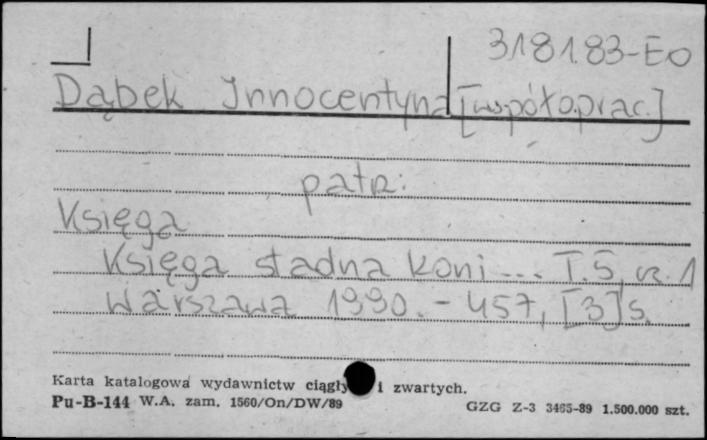 318183-EO
Dąbek Innocentyna [współoprac.]
patrz:
Księga
Księga stadna koni... T.5, cz. 1
Warszawa 1990. - 457, [3] s.
Karta katalogowa wydawnictw ciągły i zwartych.
Pu-B-144 W.A. zam. 1560/On/DW/89 GZG Z-3 3465-89 1.500.000 szt.